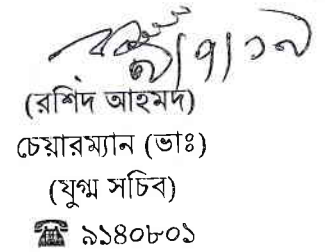 (রশিদ আহমদ)
চেয়ারম্যান (ভাঃ)
(যুগ্ম সচিব)
☎ ৯১৪০৮০১